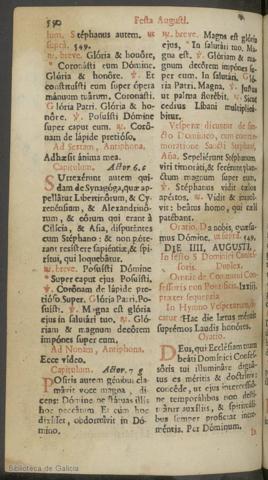 590
Festa Augusti.
lum. Stéphanus autem.
supra. 549.
℟. breve. Glória & honóre,
* Coronásti eum Dómine.
Glória & honóre. ℣. Et
constituísti eum super ópera
mánuum tuárum. Coronásti.
Glória Patri. Glória & ho-
nóre. ℣. Posuísti Dómine
super caput eum. ℟. Coró-
nam de lápide pretióso.
Ad Sextam, Antiphona.
Adhæsit ánima mea.
Capitulum. Actor. 6. c
Surrexérunt autem qui-
dam de Synagóga, quæ ap-
pellátur Libertinórum, & Cy-
renénsium, & Alexandrinó-
rum, & eórum qui erant à
Cilícia, & Asia, disputántes
cum Stéphano: & non póte-
rant resístere sapiéntiæ, & spi-
rítui, qui loquebátur.
℟. breve. Posuísti Dómine
* Super caput ejus Posuísti.
℣. Corónam de lápide pre-
tióso Super. Glória Patri. Po-
suísti. ℣. Magna est glória
ejus in salutári tuo. ℟. Gló-
riam & magnum decórem
impónes super eum.
Ad Nonam, Antiphona.
Ecce video.
Capitulum. Actor. 7 g
Pósitis autem génibus cla-
mávit voce magna, di-
cens: Dómine ne státuas illis
hoc peccátum Et cum hoc
dixísset, obdormívit in Dó-
mino.
℟. breve. Magna est glória
ejus, * In salutári tuo. Ma-
gna est. ℣. Glóriam & ma-
gnum decórem impónes su-
per eum. In salutári. Gló-
ria Patri. Magna. ℣. Justus
ut palma florébit. ℟. Sicut
cedrus Líbani multiplicá-
bitur.
Vesperæ dicuntur de san-
cto Dominico, cum comme-
moratione Sancti Stephani,
Aña. Sepeliérunt Stéphanum
viri timoráti, & fecérunt plan-
ctum magnum super eum.
℣. Stéphanus vidit cælos
apértos. ℟. Vidit & introí-
vit: beátus homo, qui cæli
patébant.
Oratio, Da nobis, quǽsu-
mus Dómine, ut supra. 549.
DIE IIII, AUGUSTI,
In festo S Dominici Confes-
soris. Duplex.
Omnia de Communi Con-
fessoris non Pontificis. lxxiij.
præter sequentia
In Hymno Vesperarum, mu-
tatur Hac die lætus méruit
suprémos Laudis honóres.
Oratio.
Deus, qui Ecclésiam tuam
beáti Domínici Confes-
sóris tui illumináre digná-
tus es méritis & doctrínis:
concéde, ut ejus intercessió-
ne temporálibus non desti-
tuátur auxíliis, & spirituáli-
bus semper profíciat incre-
méntis. Per Dóminum.
Biblioteca de Galicia